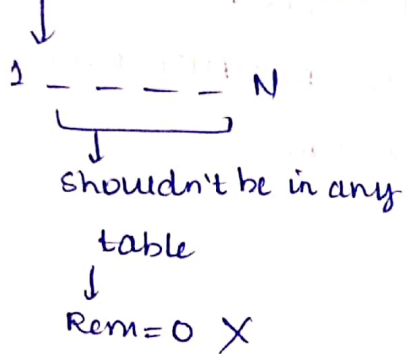 ↓
1 _ _ _ _ N
↓
shouldn't be in any
table
↓
Rem=0 X